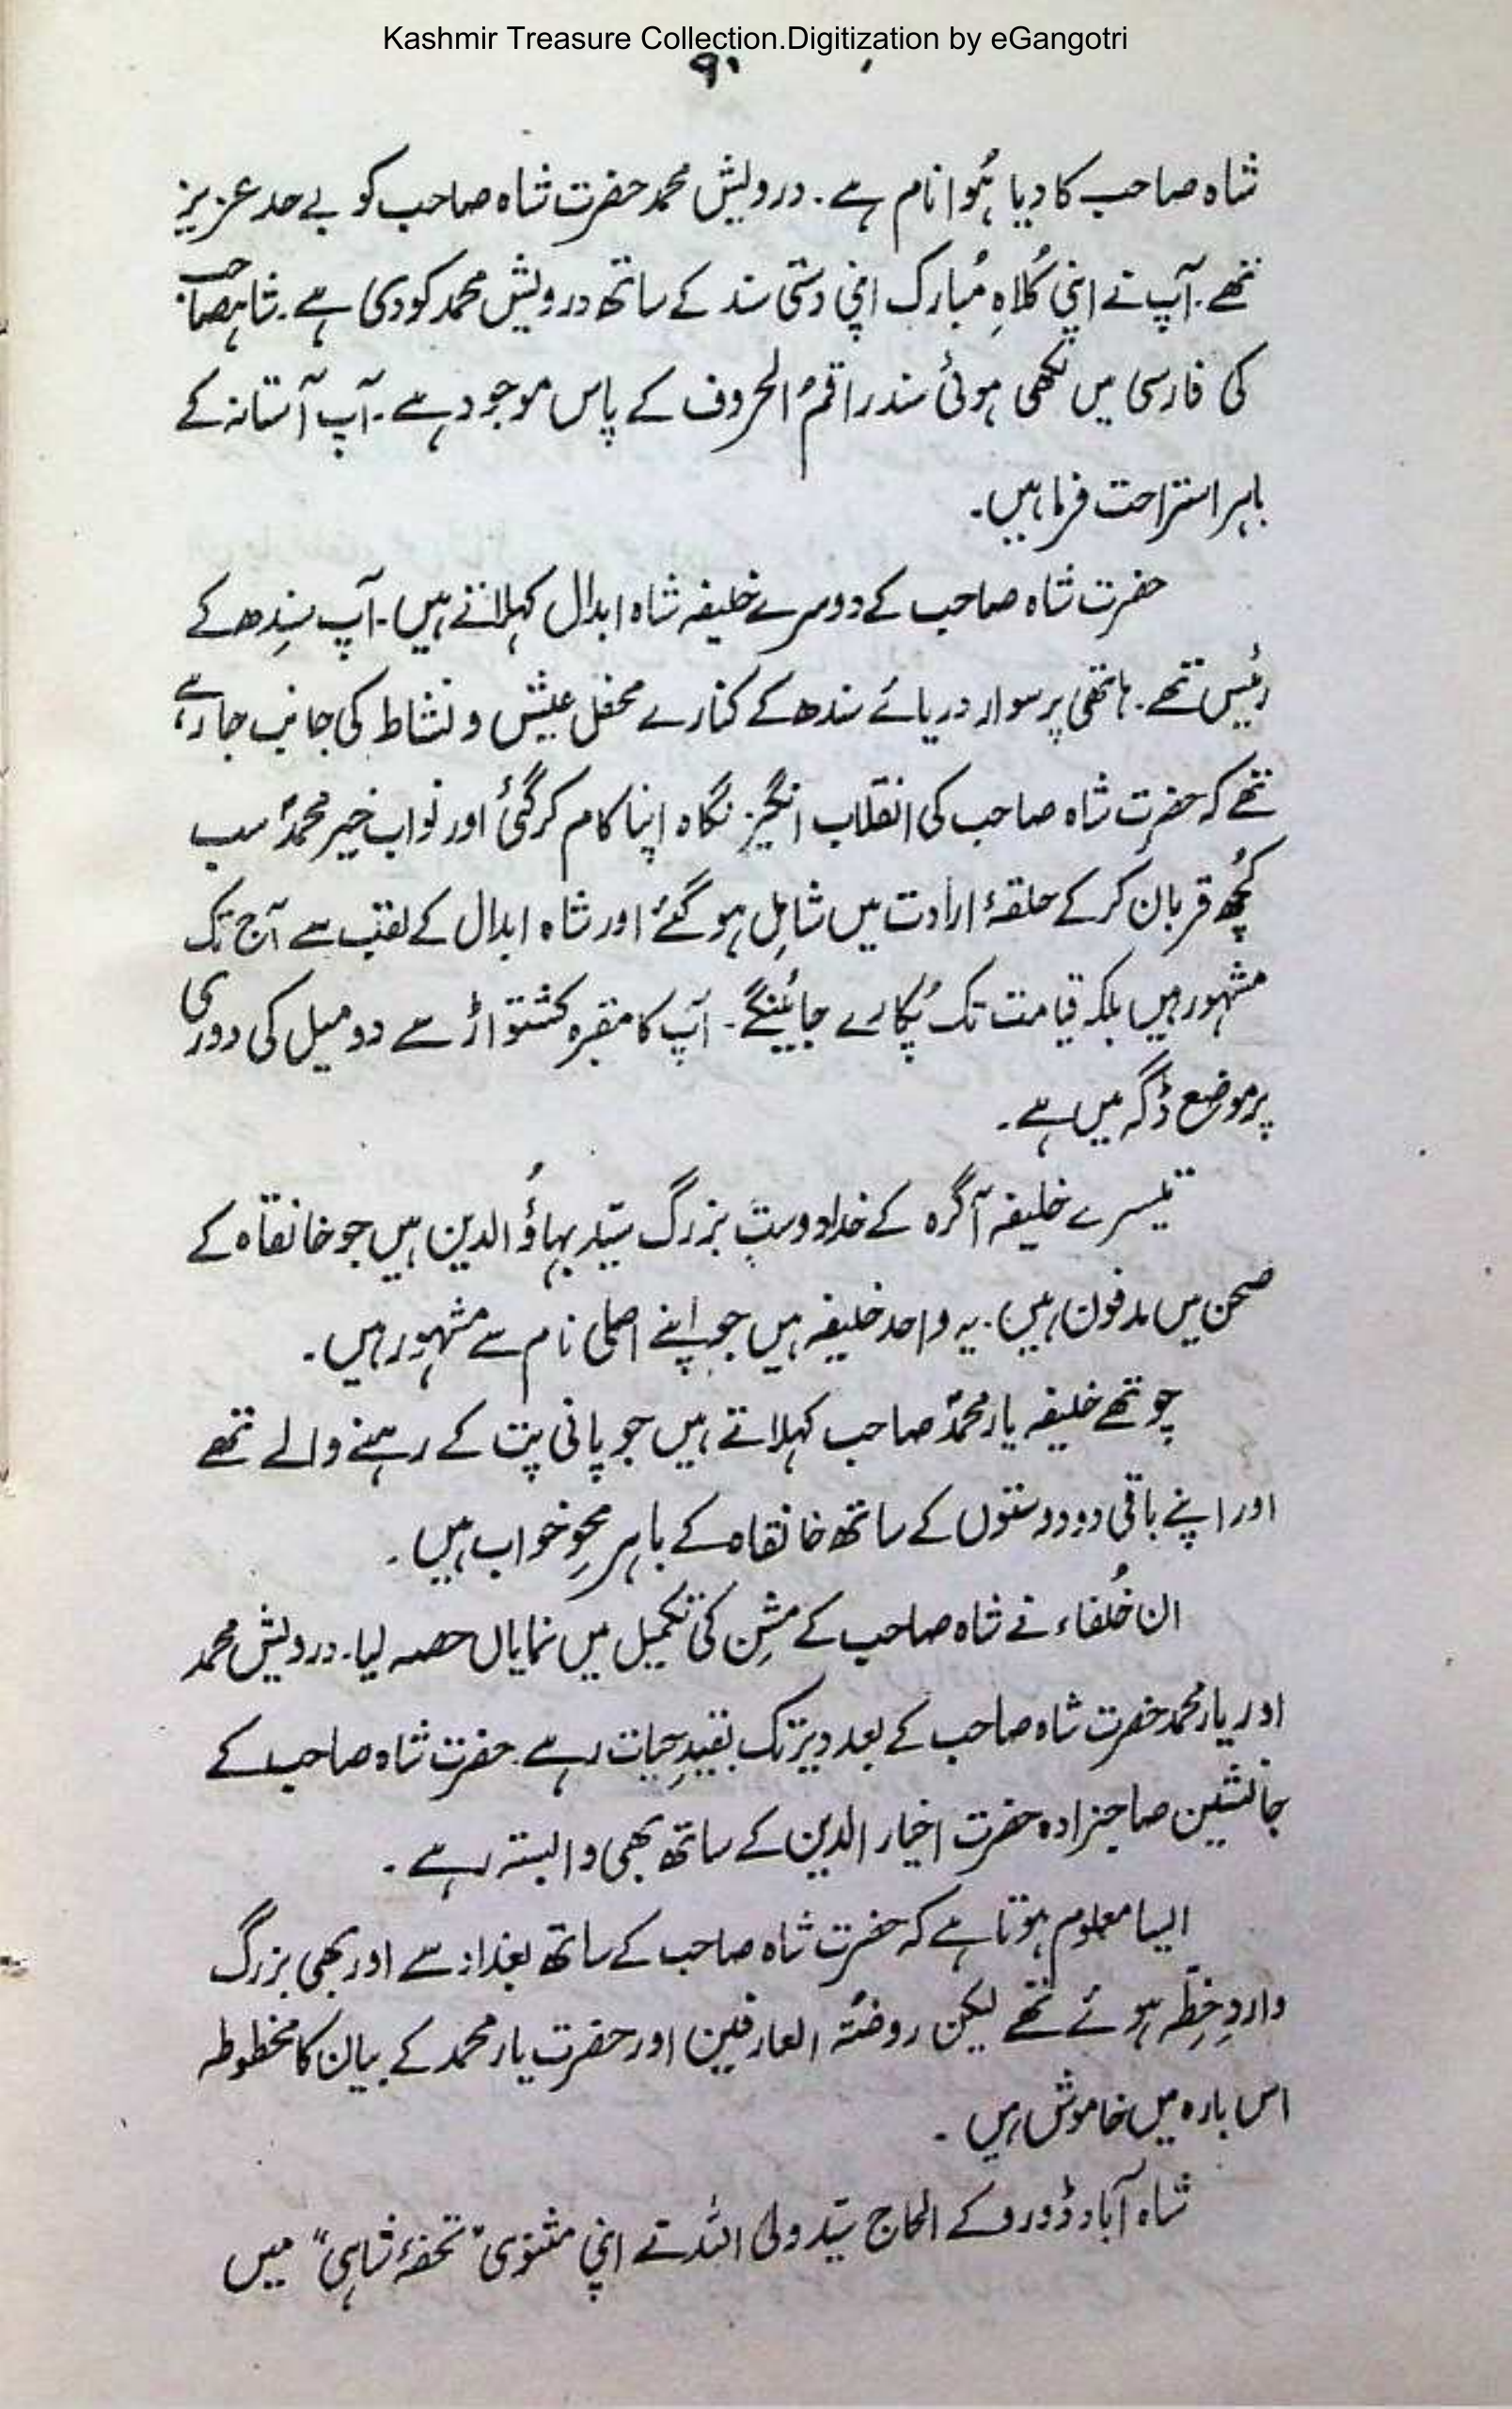 Kashmir Treasure Collection.Digitization by eGangotri
۹۰
شاہ صاحب کا دیا ہُوا نام ہے۔ درویش محمد حضرت شاہ صاحب کو بے حد عزیز
تھے۔ آپ نے اپنی کُلاہِ مُبارک اپنی دستی سند کے ساتھ درویش محمد کو دی ہے۔ شاہصاحب
کی فارسی میں لکھی ہوئی سند راقمُ الحروف کے پاس موجود ہے۔ آپ آستانہ کے
باہر استراحت فرما ہیں۔
حضرت شاہ صاحب کے دوسرے خلیفہ شاہ ابدال کہلاتے ہیں۔ آپ سِندھ کے
رئیس تھے۔ ہاتھی پر سوار دریائے سندھ کے کنارے محفل عیش و نشاط کی جانب جا رہے
تھے کہ حضرت شاہ صاحب کی انقلاب انگیز نگاہ اپنا کام کر گئی اور نواب خیر محمدؐ سب
کُچھ قربان کر کے حلقۂ ارادت میں شامِل ہو گئے اور شاہ ابدال کے لقب سے آج تک
مشہور ہیں بلکہ قیامت تک پُکارے جائینگے۔ آپ کا مقبرہ کشتواڑ سے دو میل کی دوری
پر موضع ڈگہ میں ہے۔
تیسرے خلیفہ آگرہ کے خدا دوست بزرگ سیّد بہاؤُ الدین ہیں جو خانقاہ کے
صحن میں مدفون ہیں۔ یہ واحد خلیفہ ہیں جو اپنے اصلی نام سے مشہور ہیں۔
چوتھے خلیفہ یار محمدؐ صاحب کہلاتے ہیں جو پانی پت کے رہنے والے تھے
اور اپنے باقی دو دوستوں کے ساتھ خانقاہ کے باہر محوِ خواب ہیں۔
ان خُلفاء نے شاہ صاحب کے مشِن کی تکمیل میں نمایاں حصہ لیا۔ درویش محمد
اور یار محمد حضرت شاہ صاحب کے بعد دیر تک بقیدِ حیات رہے۔ حضرت شاہ صاحب کے
جانشین صاحبزادہ حضرت اخیار الدین کے ساتھ بھی وابستہ رہے۔
ایسا معلوم ہوتا ہے کہ حضرت شاہ صاحب کے ساتھ بغداد سے اور بھی بزرگ
واردِ خِطّہ ہوئے تھے لیکن روضتہ العارفین اور حضرت یار محمد کے بیان کا مخطوطہ
اس بارہ میں خاموش ہیں۔
شاہ آباد ڈورو کے الحاج سیّد ولی اللہ نے اپنی مثنوی "تحفۂ شاہی" میں